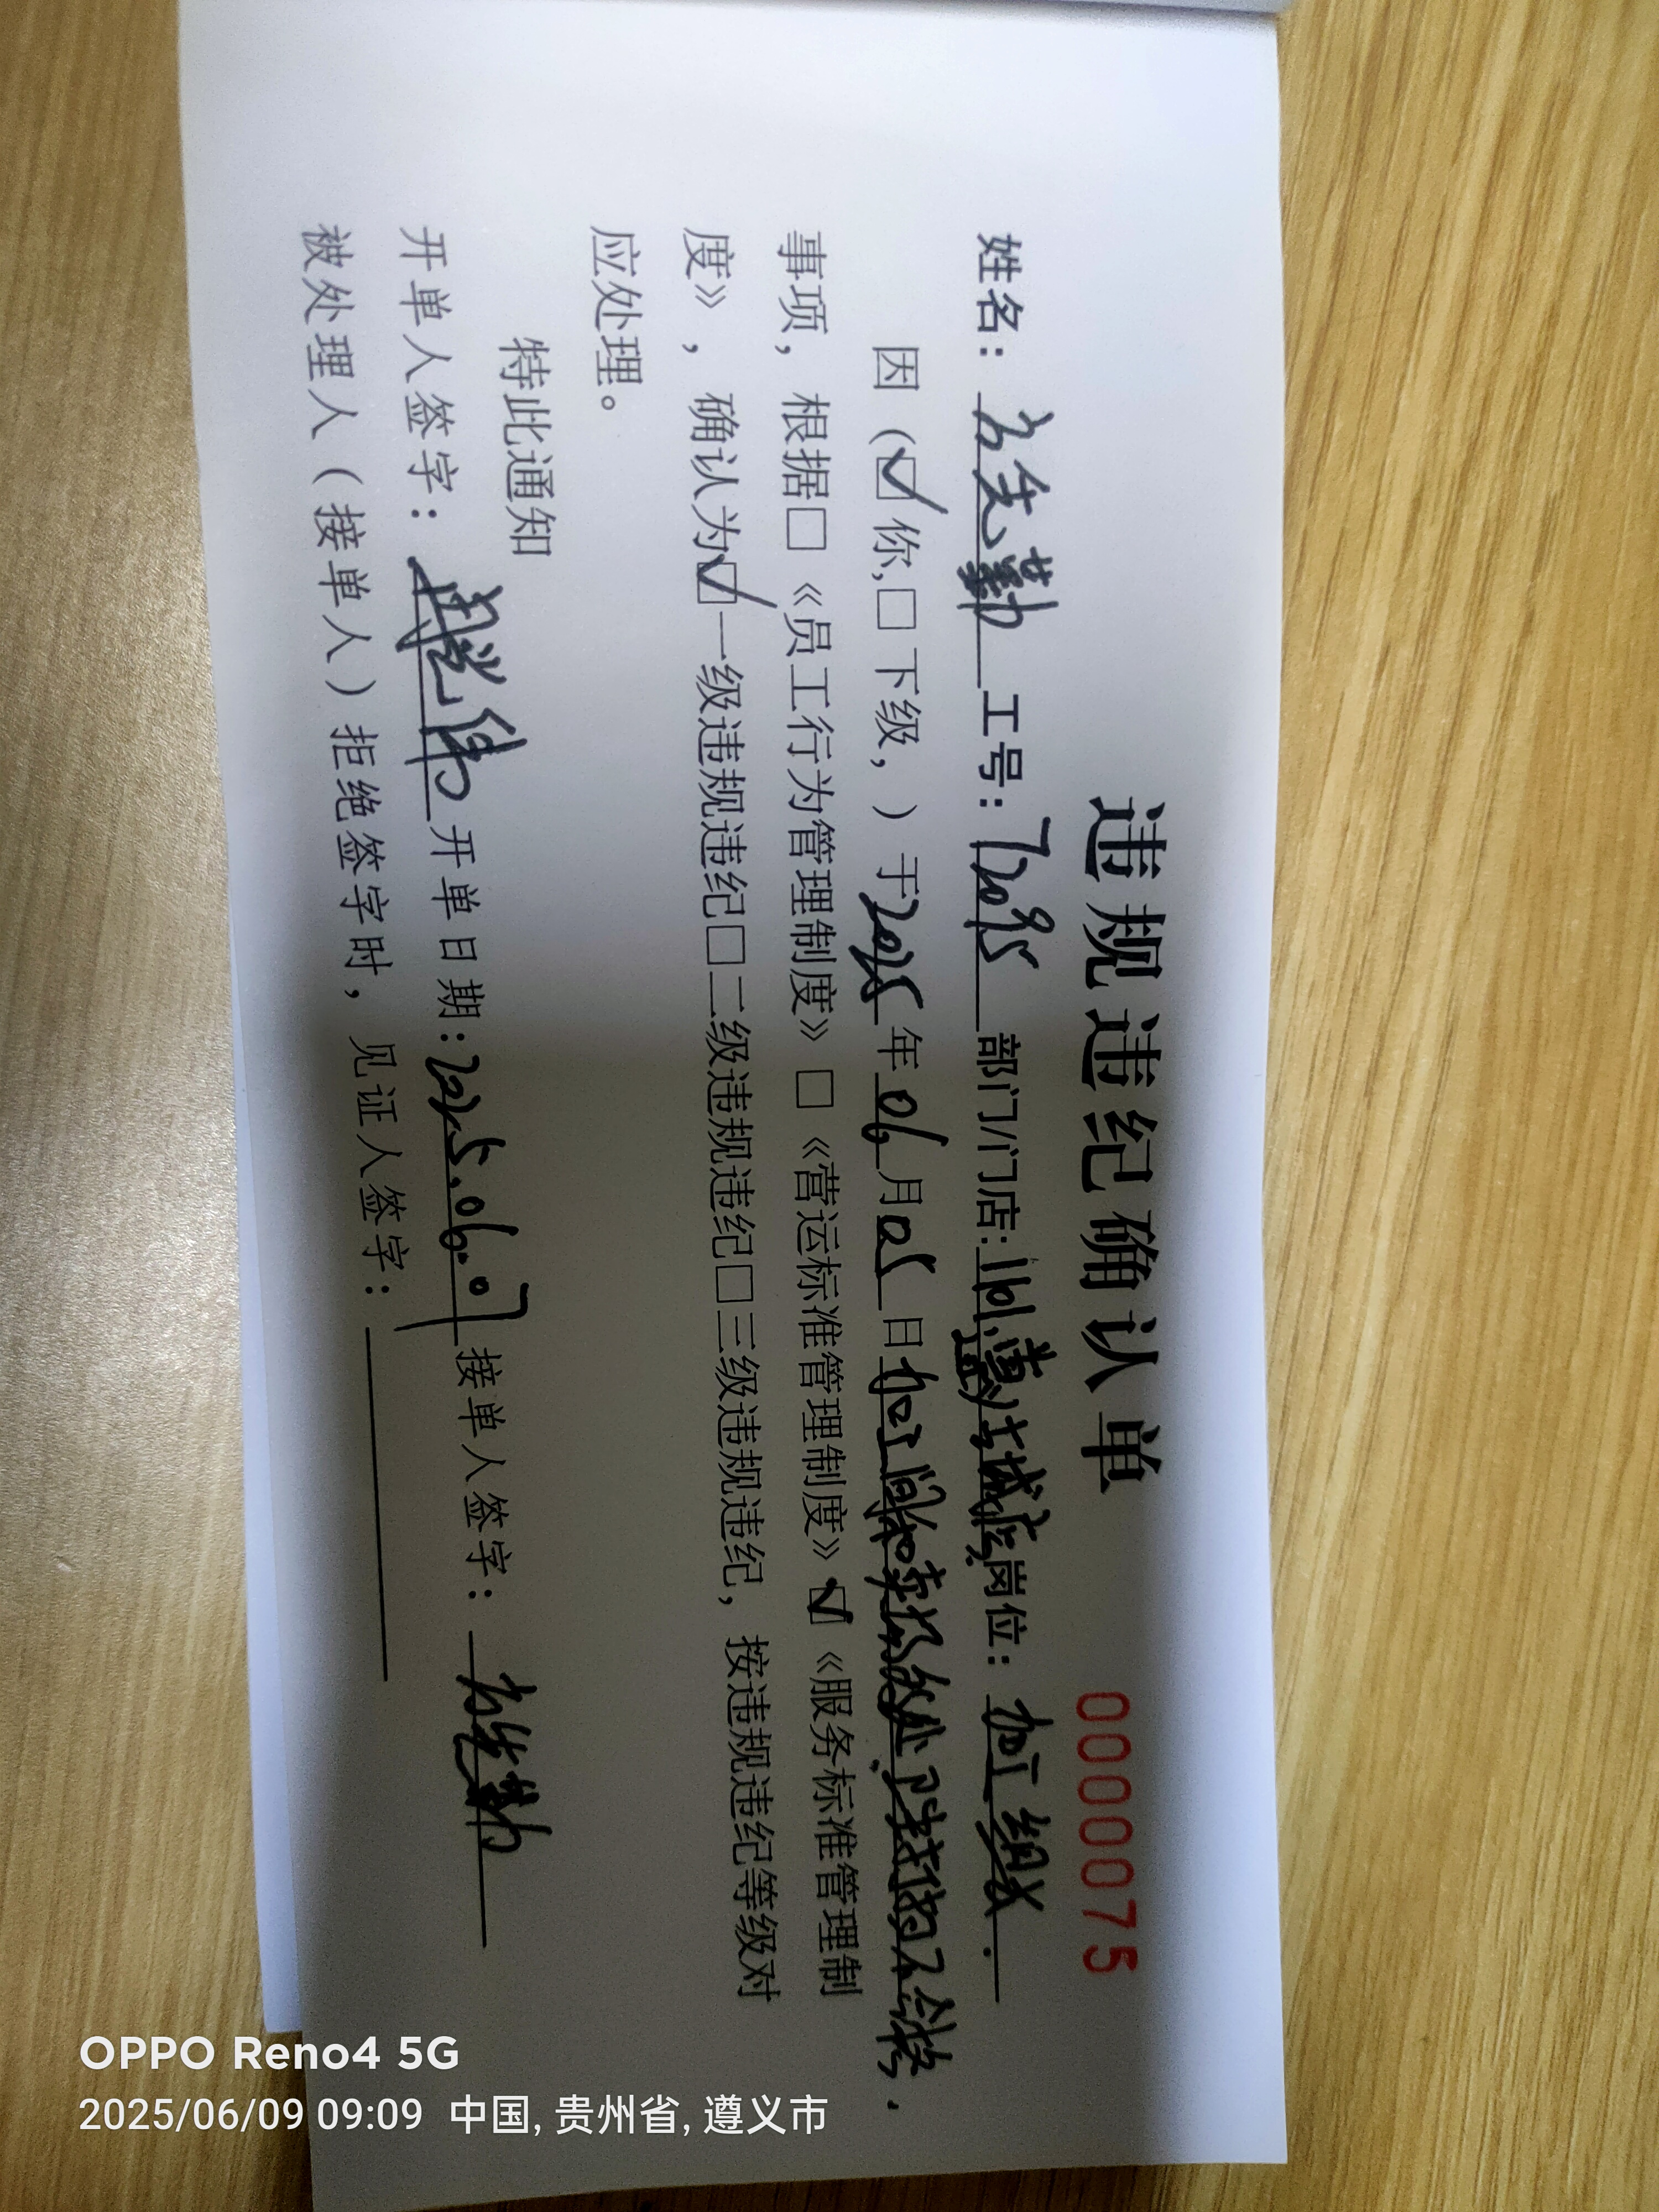 违规违纪确认单 0000075
姓名： 工号：72095 部门/门店：1101 城店 岗位：加工组长.
因（☑你,□下级，）于2025年06月05日加工间 不合格.
事项，根据□《员工行为管理制度》□《营运标准管理制度》☑《服务标准管理制
度》，确认为☑一级违规违纪□二级违规违纪□三级违规违纪，按违规违纪等级对
应处理。
特此通知
开单人签字： 开单日期:2025.06.07 接单人签字：
被处理人（接单人）拒绝签字时，见证人签字：
OPPO Reno4 5G
2025/06/09 09:09 中国, 贵州省, 遵义市